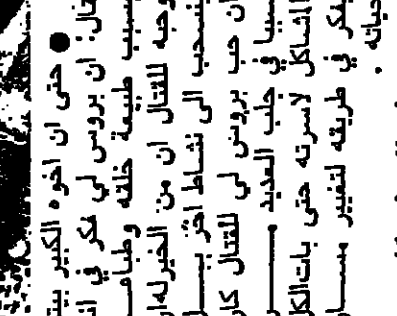 ● حتى ان اخوه الكبير
ان بروس لي فكر في
بسبب طبيعة خلقه
وحبه للقتال ان من الخير له
الى نشاط آخر
ان حب بروس لي للقتال
سببا في جلب العديد
المشاكل لاسرته حتى بات الكل
يفكر في طريقة لتغيير
حياته.